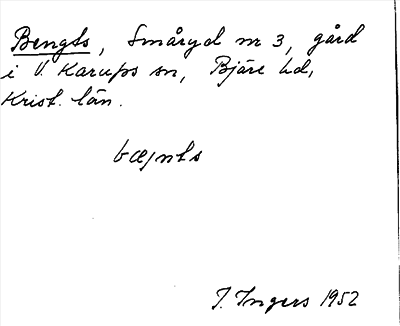 Bengts, Småryd nr 3, gård
i V. Karups sn, Bjäre hd,
Krist. län.
bæɲts
I. Ingers 1952